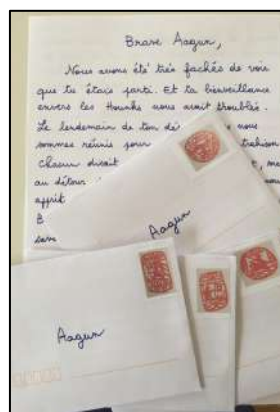 Brave Aagun,
Nous avons été très fachés de voir
que tu étais parti. Et ta bienveillance
envers les Hounks nous avait troublés.
Le lendemain de ton dé nous
sommes réunis pour trahison
Chacun disait
au détour
apprit
B
Aagun
Aagun